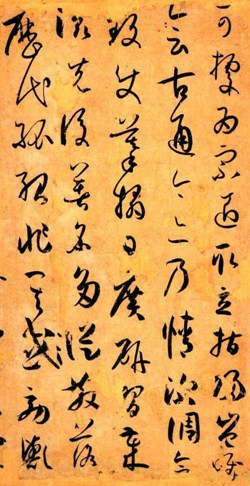 可據為宗匠取立指歸豈唯
會古通今亦乃情深調合
致使摹搨日廣研習歲
滋先後著名多從散落
歷代孤紹非其效歟